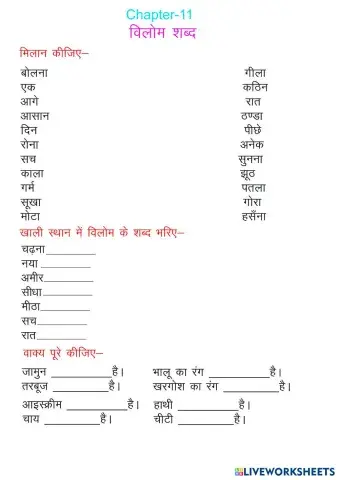 Chapter-11
विलोम शब्द
मिलान कीजिए–
बोलना गीला
एक कठिन
आगे रात
आसान ठण्डा
दिन पीछे
रोना अनेक
सच सुनना
काला झूठ
गर्म पतला
सूखा गोरा
मोटा हसँना
खाली स्थान में विलोम के शब्द भरिए–
चढ़ना__________
नया __________
अमीर__________
सीधा__________
मीठा__________
सच__________
रात__________
वाक्य पूरे कीजिए–
जामुन __________है। भालू का रंग __________है।
तरबूज __________है। खरगोश का रंग __________है।
आइस्क्रीम __________है। हाथी __________है।
चाय __________है। चीटी __________है।
LIVEWORKSHEETS